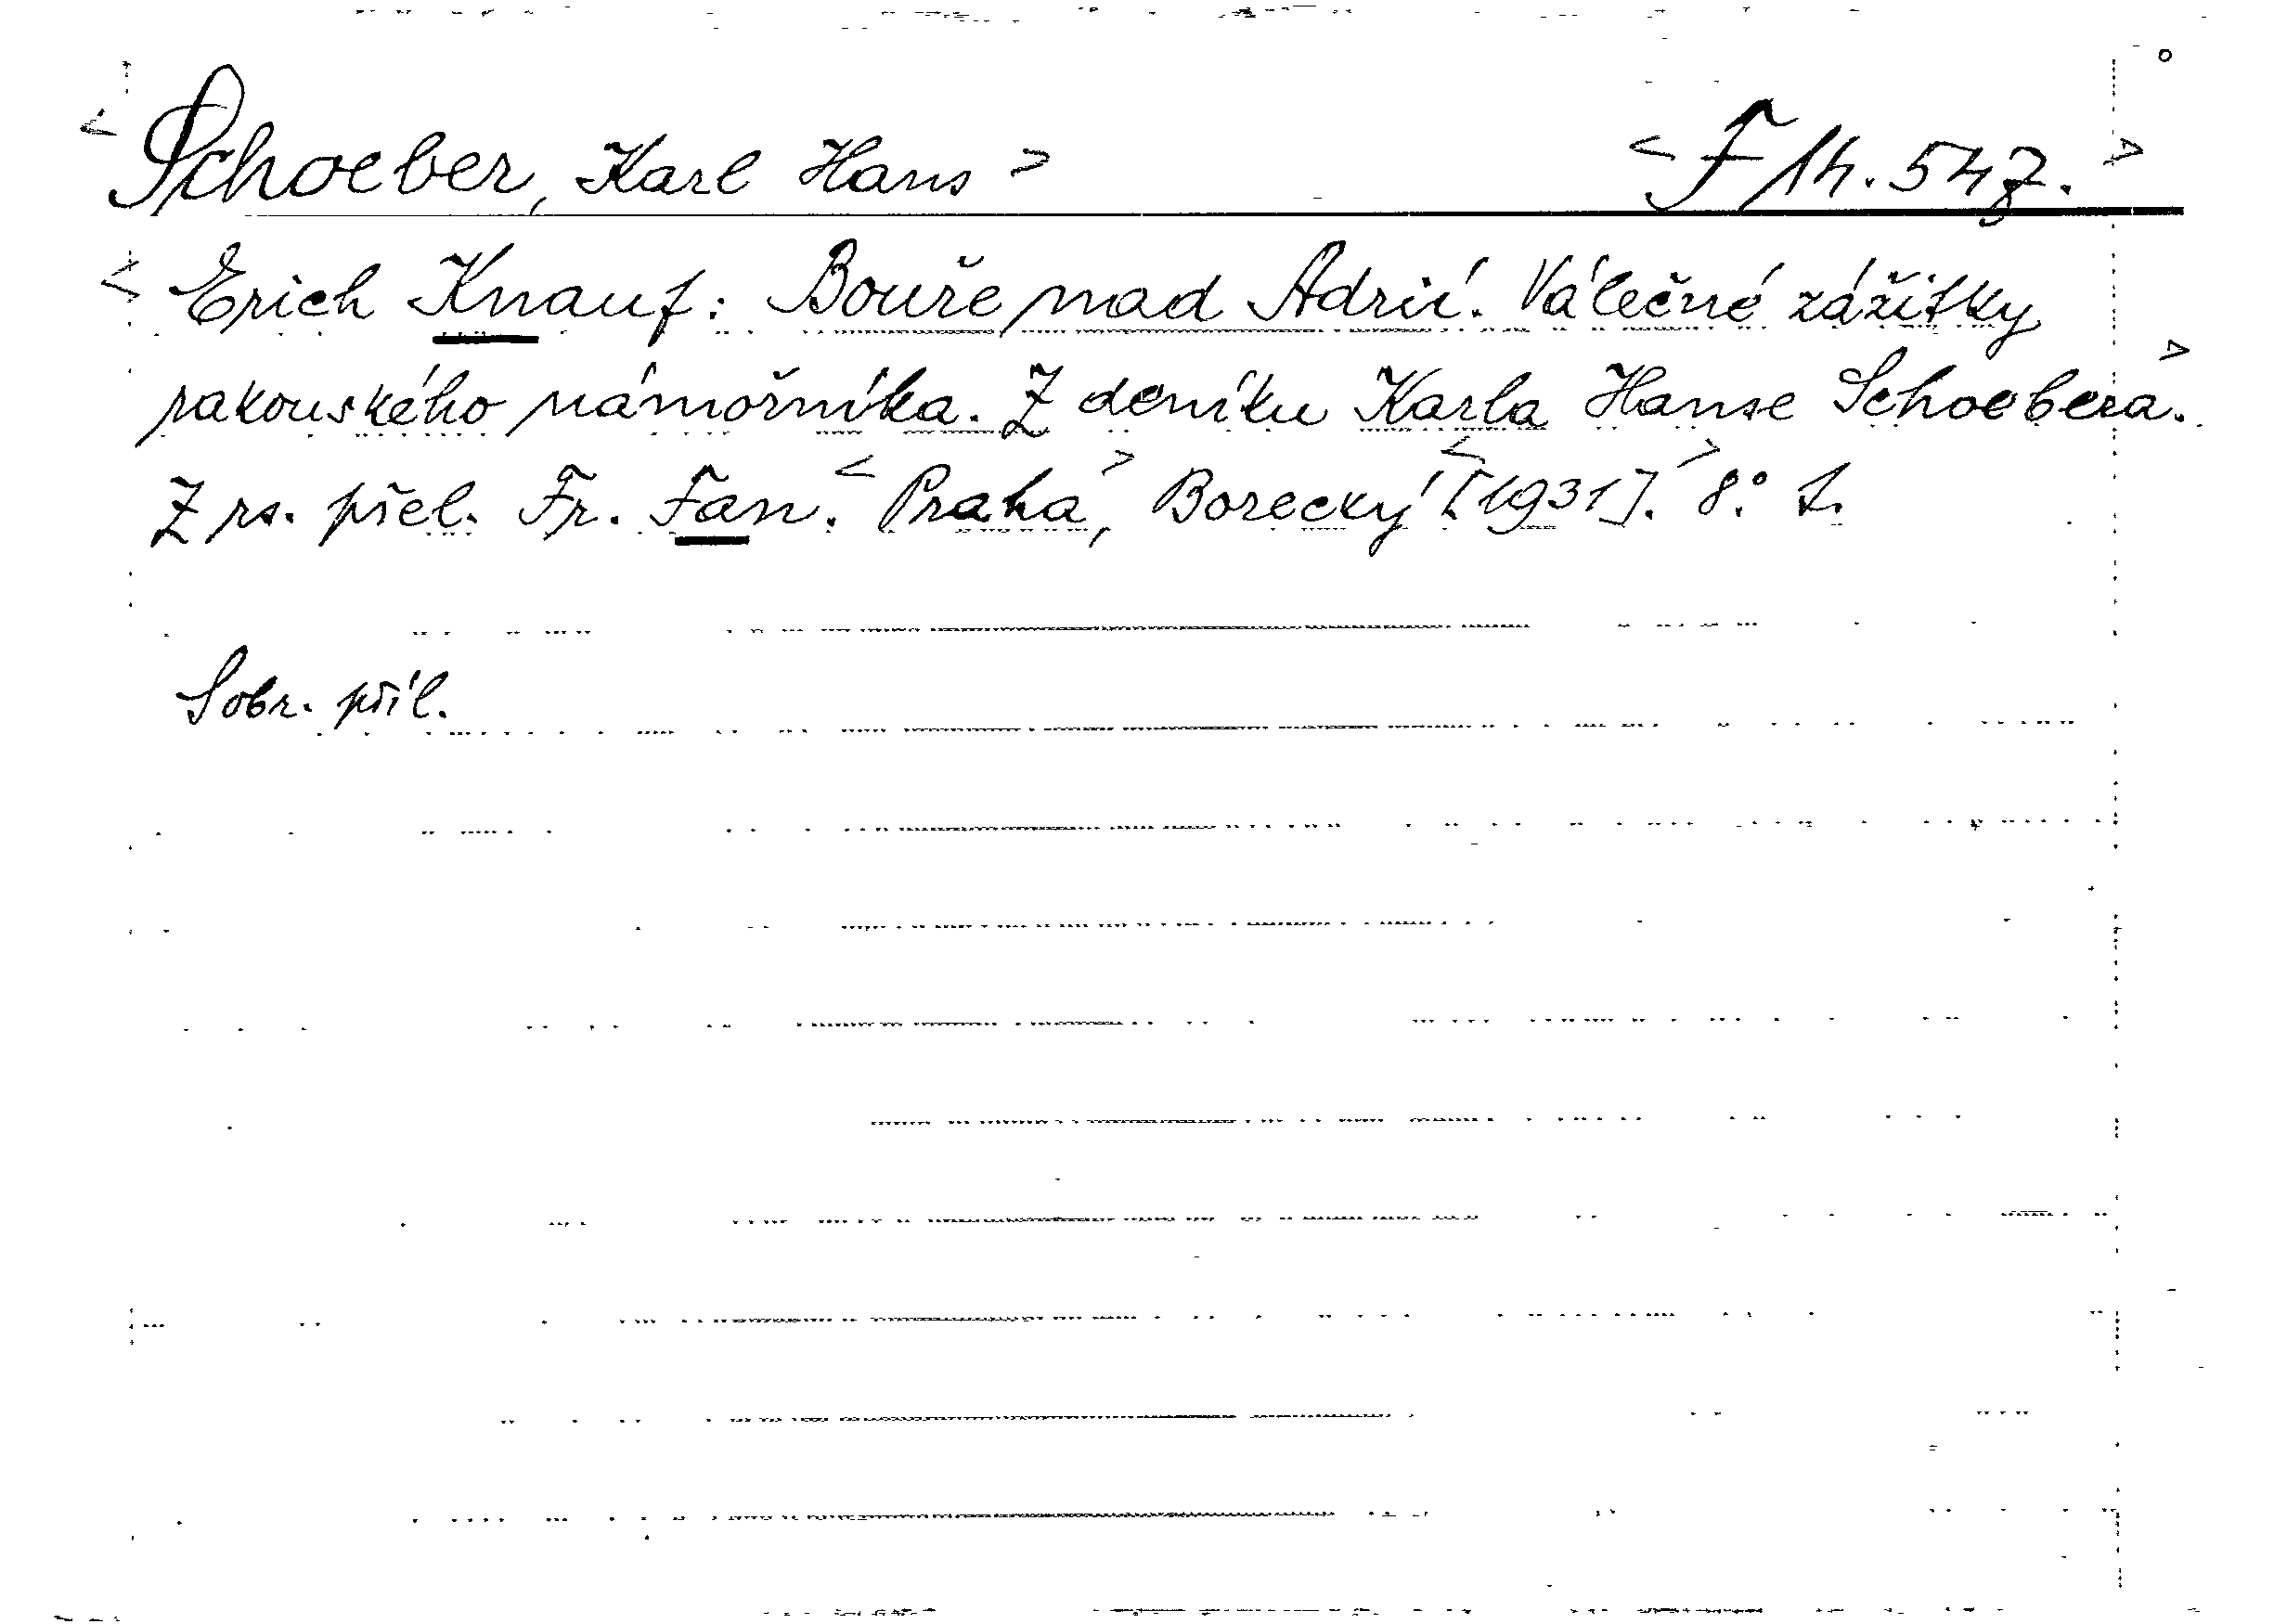 <Schoeber, Karl Hans> <F 14.547.>
<Erich Knauf: Bouře nad Adrií. Válečné zážitky
rakouského námořníka. Z deníku Karla Hanse Schoebera.>
Z rs. přel. Fr. Fan. <Praha>, Borecký <[1931].> 8.° I.
Sobr. příl.